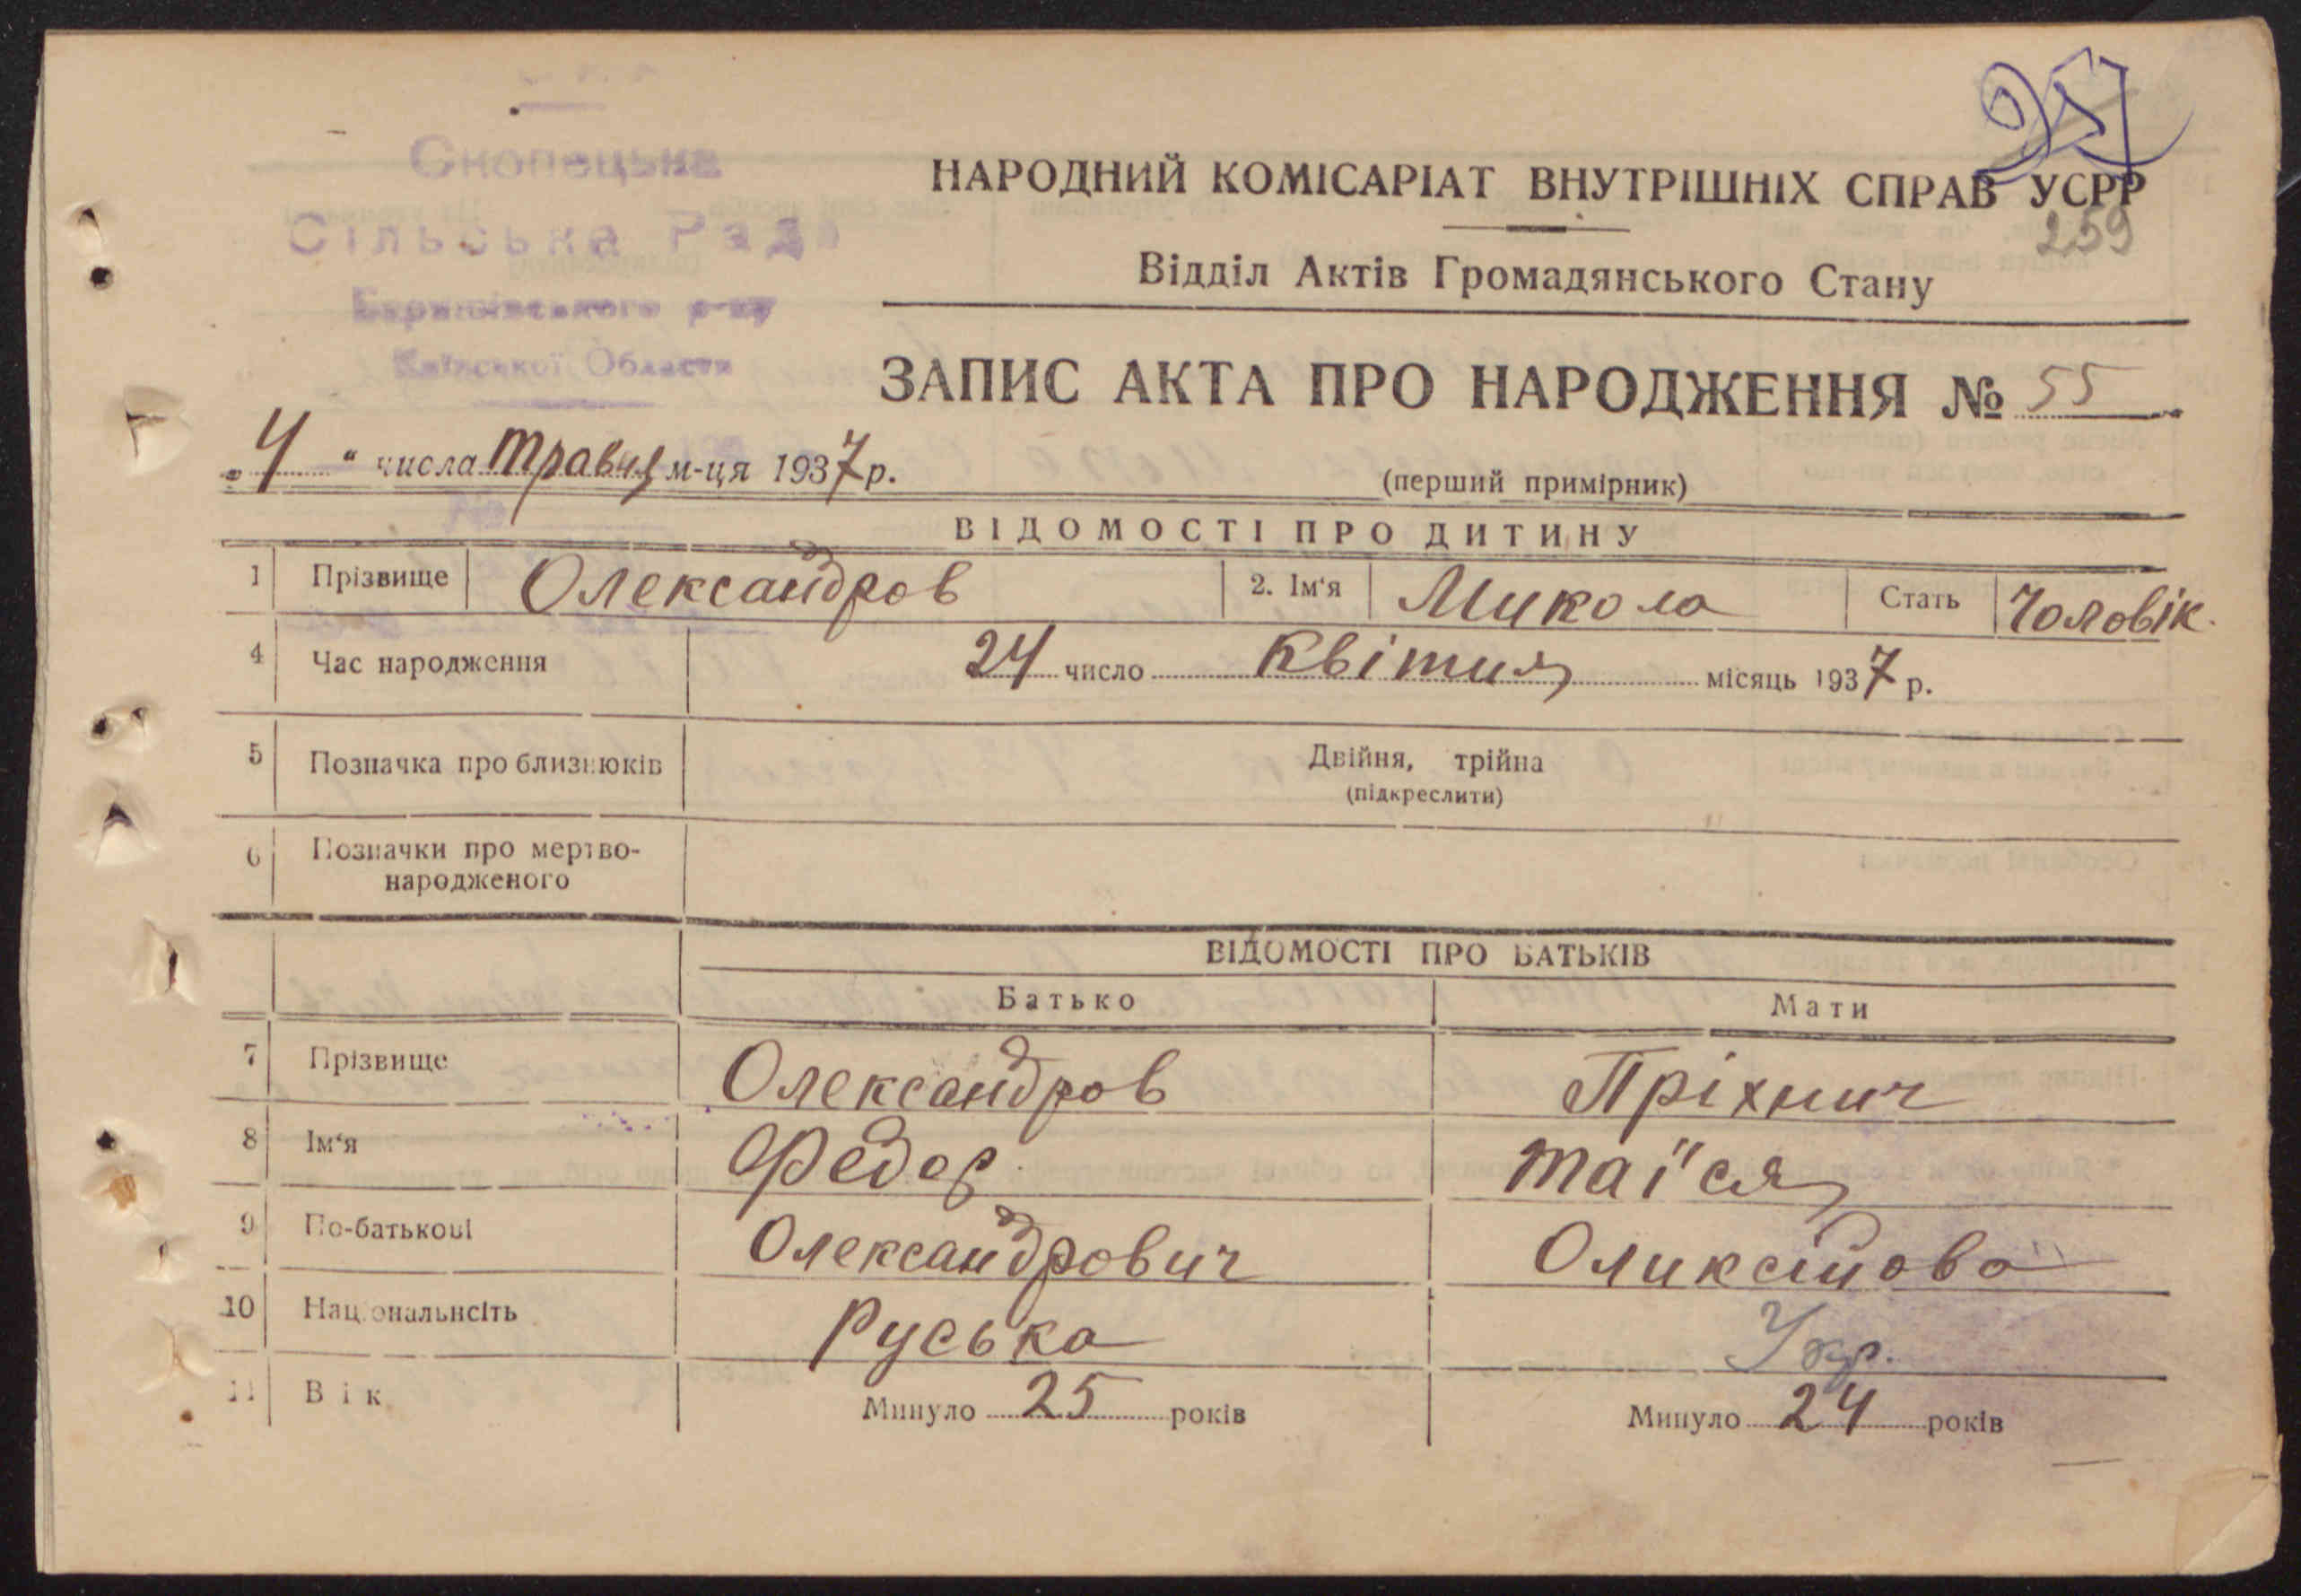 Скопецька
Сільська Рада
Баришівського р-ну
Київської Области
НАРОДНИЙ КОМІСАРІАТ ВНУТРІШНІХ СПРАВ УСРР
259
Відділ Актів Громадянського Стану
ЗАПИС АКТА ПРО НАРОДЖЕННЯ № 55
„4“ числа Травня м-ця 1937 р.
(перший примірник)
ВІДОМОСТІ ПРО ДИТИНУ
1 Прізвище Олександров 2. Ім'я Микола Стать Чоловік.
4 Час народження 24 число Квітня місяць 1937 р.
5 Позначка про близнюків Двійня, трійна
(підкреслити)
6 Позначки про мертво-
народженого
ВІДОМОСТІ ПРО БАТЬКІВ
Батько Мати
7 Прізвище Олександров Пріхнич
8 Ім'я Федор Таїся
9 По-батькові Олександрович Оликсійова
10 Національнсіть Руська Укр.
11 Вік Минуло 25 років Минуло 24 років